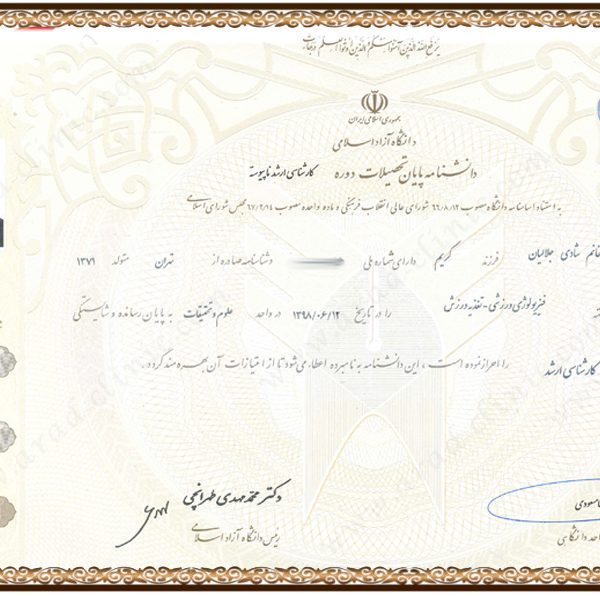 یرفع الله الذین آمنوا منکم والذین اوتوا العلم درجات
جمهوری اسلامی ایران
دانشگاه آزاد اسلامی
دانشنامه پایان تحصیلات دوره کارشناسی ارشد ناپیوسته
به استناد اساسنامه دانشگاه مصوب ۶۶/۸/۱۲ شورای عالی انقلاب فرهنگی و ماده واحده مصوب ۶۷/۲/۱۴ مجلس شورای اسلامی
خانم شادی جلالیان فرزند کریم دارای شماره ملی وشناسنامه صادره از تهران متولد ۱۳۷۱
فیزیولوژی ورزشی - تغذیه ورزش را در تاریخ ۱۳۹۸/۰۶/۱۲ در واحد علوم و تحقیقات به پایان رسانده و شایستگی
کارشناسی ارشد را احراز نموده است ، این دانشنامه به نامبرده اعطاء می شود تا از امتیازات آن بهره مند گردد .
دکتر محمد مهدی طهرانچی
رئیس دانشگاه آزاد اسلامی